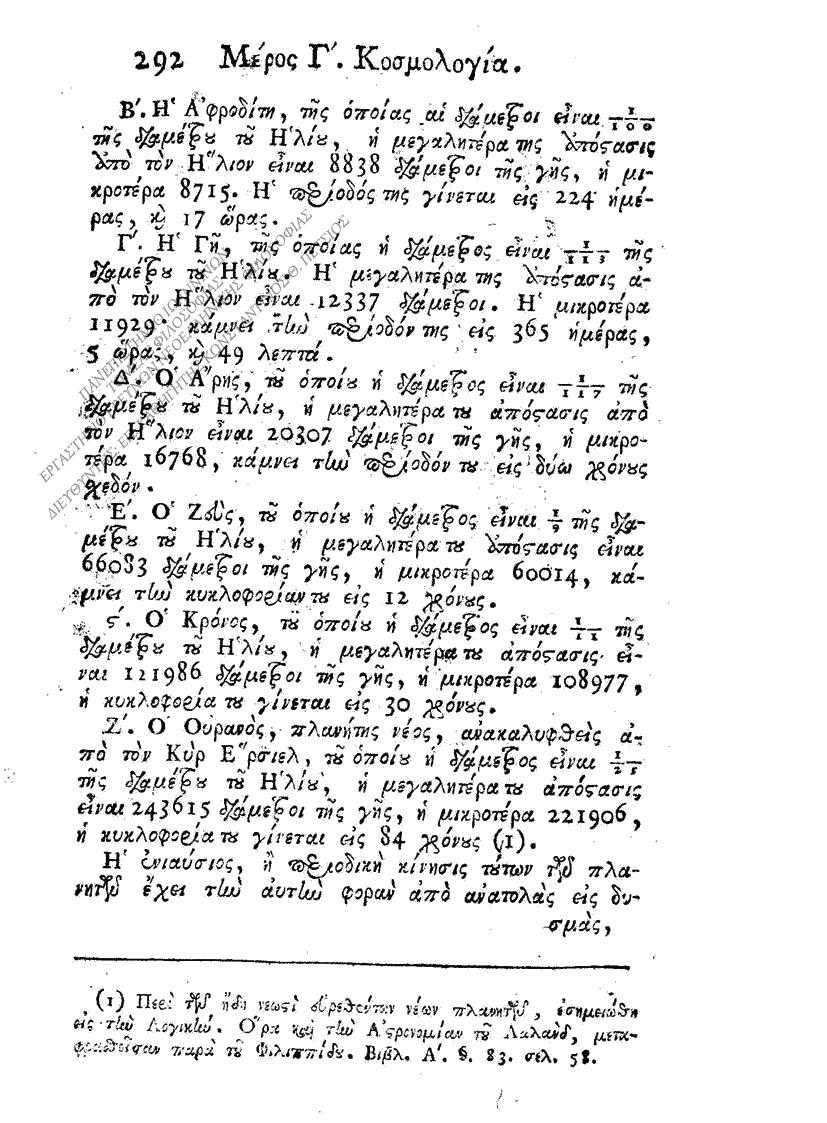 292 Μέρος Γ΄. Κοσμολογία.
Β΄. Η῾ Α᾿φροδίτη, τῆς ὁποίας αἱ διάμετροι εἶναι 1/100
τῆς διαμέτρου τοῦ Η῾λίου, ἡ μεγαλητέρα της ἀπόστασις
ἀπὸ τὸν Η῞λιον εἶναι 8838 διάμετροι τῆς γῆς, ἡ μι-
κροτέρα 8715. Η῾ περίοδός της γίνεται εἰς 224 ἡμέ-
ρας, καὶ 17 ὥρας.
Γ΄. Η῾ Γῆ, τῆς ὁποίας ἡ διάμετρος εἶναι 1/113 τῆς
διαμέτρου τοῦ Η῾λίου. Η῾ μεγαλητέρα της ἀπόστασις ἀ-
πὸ τὸν Η῞λιον εἶναι 12337 διάμετροι. Η῾ μικροτέρα
11929· κάμνει τὴν περίοδόν της εἰς 365 ἡμέρας,
5 ὥρας, καὶ 49 λεπτά.
Δ΄. Ο῾ Α῎ρης, τοῦ ὁποίου ἡ διάμετρος εἶναι 1/117 τῆς
διαμέτρου τοῦ Η῾λίου, ἡ μεγαλητέρα του ἀπόστασις ἀπὸ
τὸν Η῞λιον εἶναι 20307 διάμετροι τῆς γῆς, ἡ μικρο-
τέρα 16768, κάμνει τὴν περίοδόν του εἰς δύω χρόνους
σχεδόν.
Ε΄. Ο῾ Ζεὺς, τοῦ ὁποίου ἡ διάμετρος εἶναι 1/9 τῆς δια-
μέτρου τοῦ Η῾λίου, ἡ μεγαλητέρα του ἀπόστασις εἶναι
66083 διάμετροι τῆς γῆς, ἡ μικροτέρα 60014, κά-
μνει τὴν κυκλοφορίαν του εἰς 12 χρόνους.
ϛ΄. Ο῾ Κρόνος, τοῦ ὁποίου ἡ διάμετρος εἶναι 1/11 τῆς
διαμέτρου τοῦ Η῾λίου, ἡ μεγαλητέρα του ἀπόστασις εἶ-
ναι 121986 διάμετροι τῆς γῆς, ἡ μικροτέρα 108977,
ἡ κυκλοφορία του γίνεται εἰς 30 χρόνους.
Ζ΄. Ο῾ Ουρανὸς, πλανήτης νέος, ἀνακαλυφθεὶς ἀ-
πὸ τὸν Κὺρ Ε῞ρσιελ, τοῦ ὁποίου ἡ διάμετρος εἶναι 1/25
τῆς διαμέτρου τοῦ Η῾λίου, ἡ μεγαλητέρα του ἀπόστασις
εἶναι 243615 διάμετροι τῆς γῆς, ἡ μικροτέρα 221906,
ἡ κυκλοφορία του γίνεται εἰς 84 χρόνους (1).
Η῾ ἐνιαύσιος, ἢ περιοδικὴ κίνησις τούτων τῶν πλα-
νητῶν ἔχει τὴν αὐτὴν φορὰν ἀπὸ ἀνατολὰς εἰς δυ-
σμὰς,
(1) Περὶ τῶν ἤδη νεωστὶ εὑρεθέντων νέων πλανητῶν, ἐσημειώθη
εἰς τὴν Λογικήν. Ο῞ρα καὶ τὴν Α᾿στρονομίαν τοῦ Λαλὰνδ, μετα-
φρασθεῖσαν παρὰ τοῦ Φιλιππίδου. Βιβλ. Α΄. §. 83. σελ. 58.